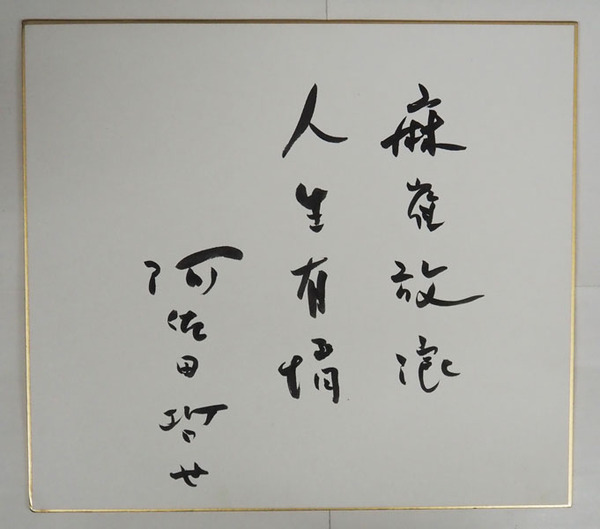 麻雀放浪
人生有情
阿佐田哲世